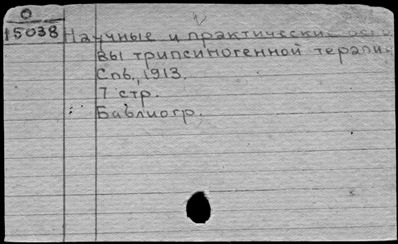 О
15038 Научные и практические осно
вы трипсиногенной терапи
Спб., 1913.
7 стр.
Библиогр.